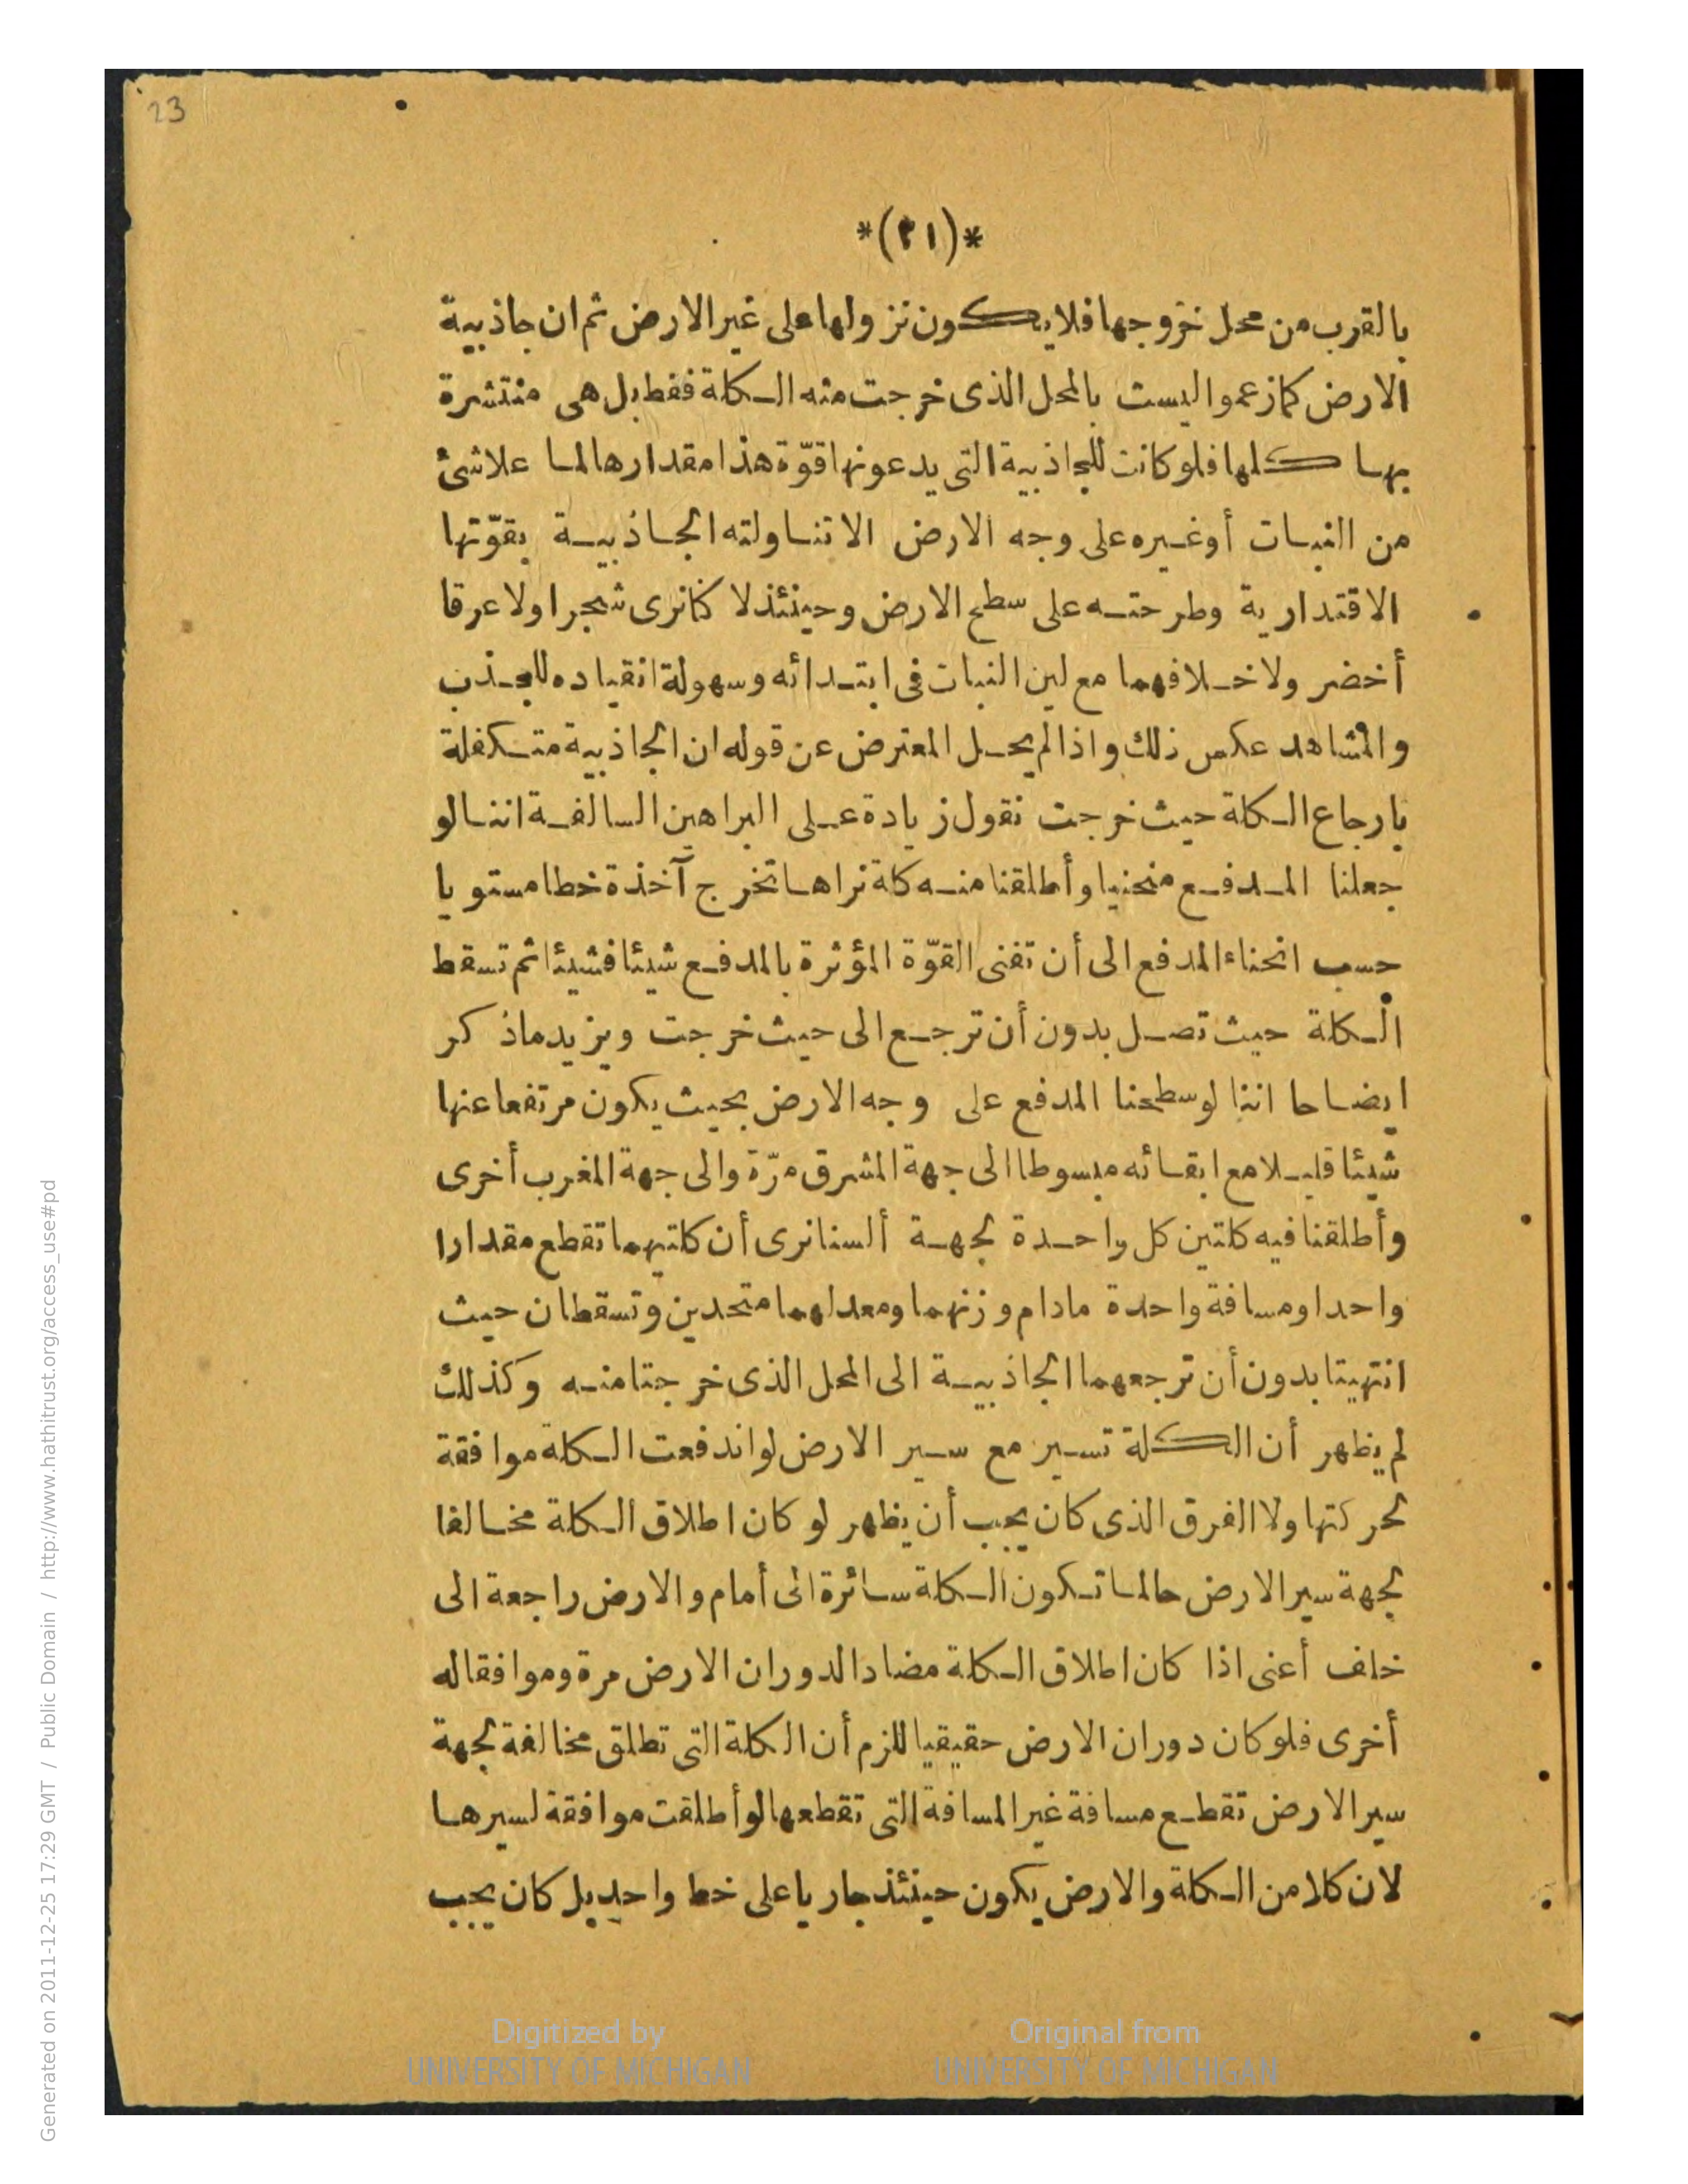 23
*(٢١)*
بالقرب من محل خروجها فلا يكون نزولها على غير الارض ثم ان جاذبية
الارض كما زعموا ليست بالمحل الذى خرجت منه الكلة فقط بل هى منتشرة
بها كلها فلو كانت للجاذبية التى يدعونها قوّة هذا مقدارها لما علا شئ
من النبات أوغيره على وجه الارض الا تناولته الجاذبية بقوّتها
الاقتدارية وطرحته على سطح الارض وحينئذ لا كنا نرى شجرا ولا عرقا
أخضر ولا خلافهما مع لين النبات فى ابتدائه وسهولة انقياده للجذب
والمشاهد عكس ذلك واذا لم يحل المعترض عن قوله ان الجاذبية متكفلة
بارجاع الكلة حيث خرجت نقول زيادة على البراهين السالفة اننا لو
جعلنا المدفع منحنيا وأطلقنا منه كلة نراها تخرج آخذة خطا مستويا
حسب انحناء المدفع الى أن تفنى القوّة المؤثرة بالمدفع شيئا فشيئا ثم تسقط
الكلة حيث تصل بدون أن ترجع الى حيث خرجت ويزيد ماذكر
ايضاحا اننا لوسطحنا المدفع على وجه الارض بحيث يكون مرتفعا عنها
شيئا قليلا مع ابقائه مبسوطا الى جهة المشرق مرّة والى جهة المغرب أخرى
وأطلقنا فيه كلتين كل واحدة لجهة ألسنا نرى أن كلتيهما تقطع مقدارا
واحدا ومسافة واحدة مادام وزنهما ومعدلهما متحدين وتسقطان حيث
انتهيتا بدون أن ترجعهما الجاذبية الى المحل الذى خرجتا منه وكذلك
لم يظهر أن الكلة تسير مع سير الارض لو اندفعت الكلة موافقة
لحركتها ولا الفرق الذى كان يجب أن يظهر لو كان اطلاق الكلة مخالفا
لجهة سير الارض حالما تكون الكلة سائرة الى أمام والارض راجعة الى
خلف أعنى اذا كان اطلاق الكلة مضادا لدوران الارض مرة وموافقا له
أخرى فلو كان دوران الارض حقيقيا للزم أن الكلة التى تطلق مخالفة لجهة
سير الارض تقطع مسافة غير المسافة التى تقطعها لو أطلقت موافقة لسيرها
لان كلا من الكلة والارض يكون حينئذ جاريا على خط واحد بل كان يجب
Digitized by
UNIVERSITY OF MICHIGAN
Original from
UNIVERSITY OF MICHIGAN
Generated on 2011-12-25 17:29 GMT / Public Domain / http://www.hathitrust.org/access_use#pd